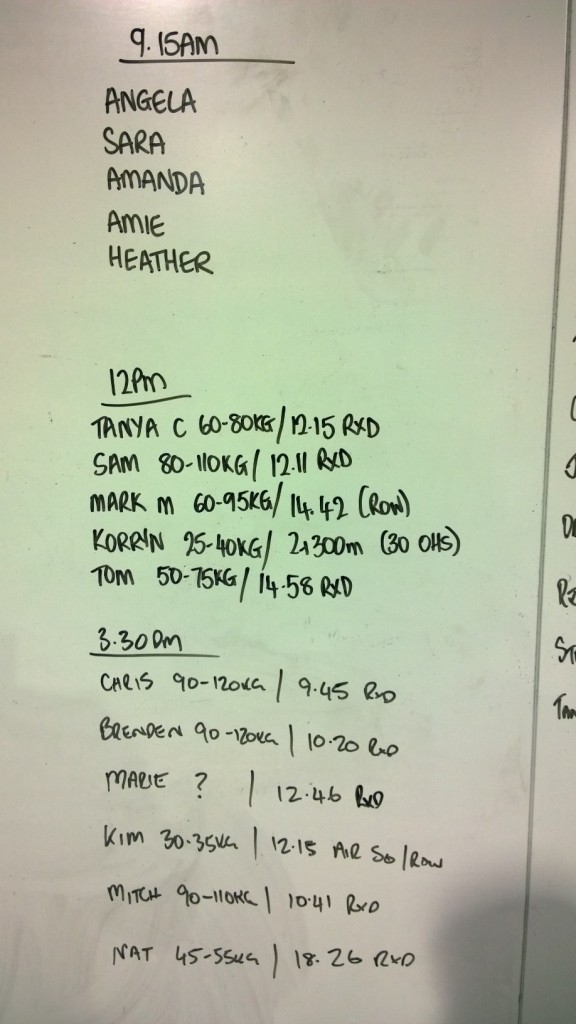 9.15AM
ANGELA
SARA
AMANDA
AMIE
HEATHER
12PM
TANYA C 60-80KG/12.15 RXD
SAM 80-110KG/ 12.11 RXD
MARK M 60-95KG/ 14.42 (ROW)
KORRIN 25-40KG/ 2,300m (30 OHS)
TOM 50-75KG/ 14.58 RXD
3.30PM
CHRIS 90-120KG / 9.45 RXD
BRENDEN 90-120KG | 10.20 RXD
MARIE ? | 12.46 RXD
KIM 30-35KG | 12.15 AIR SQ/ROW
MITCH 90-110KG | 10.41 RXD
NAT 45-55KG | 18.26 RXD